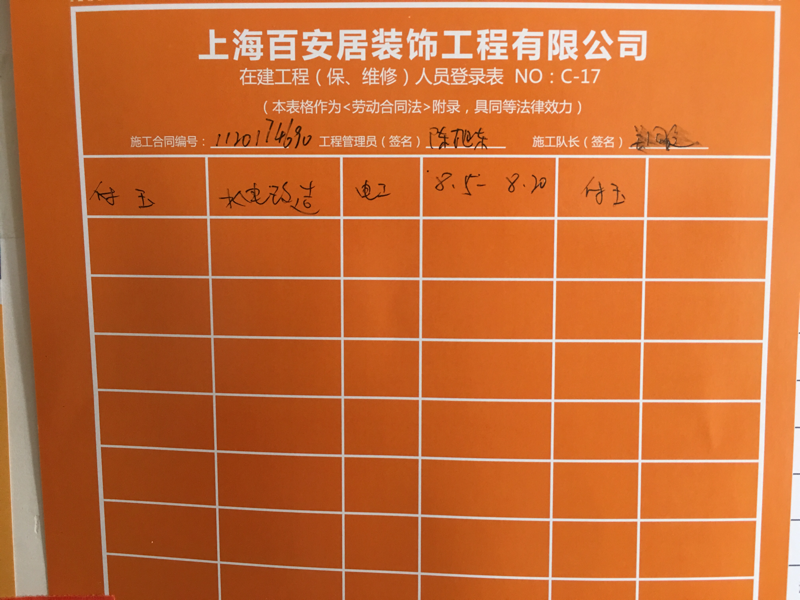 上海百安居装饰工程有限公司
在建工程（保、维修）人员登录表 NO：C-17
（本表格作为<劳动合同法>附录，具同等法律效力）
施工合同编号： 工程管理员（签名）陈旭东 施工队长（签名）
付玉 水电改造 电工 8.5- 8.20 付玉